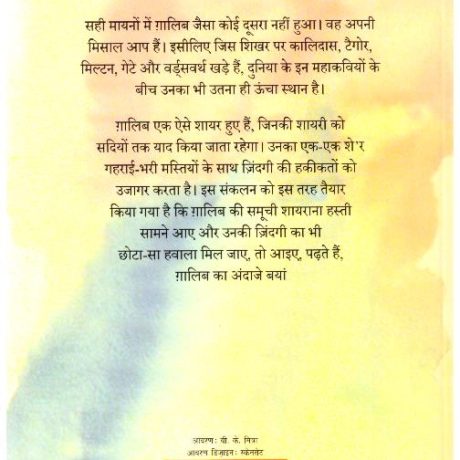 सही मायनों में ग़ालिब जैसा कोई दूसरा नहीं हुआ। वह अपनी
मिसाल आप हैं। इसीलिए जिस शिखर पर कालिदास, टैगोर,
मिल्टन, गेटे और वर्ड्सवर्थ खड़े हैं, दुनिया के इन महाकवियों के
बीच उनका भी उतना ही ऊंचा स्थान है।
ग़ालिब एक ऐसे शायर हुए हैं, जिनकी शायरी को
सदियों तक याद किया जाता रहेगा। उनका एक-एक शे'र
गहराई-भरी मस्तियों के साथ ज़िंदगी की हकीकतों को
उजागर करता है। इस संकलन को इस तरह तैयार
किया गया है कि ग़ालिब की समूची शायराना हस्ती
सामने आए और उनकी ज़िंदगी का भी
छोटा-सा हवाला मिल जाए, तो आइए, पढ़ते हैं,
ग़ालिब का अंदाजे बयां
आवरण: वी. के. मित्रा
आवरण डिज़ाइन: स्कैनसेट